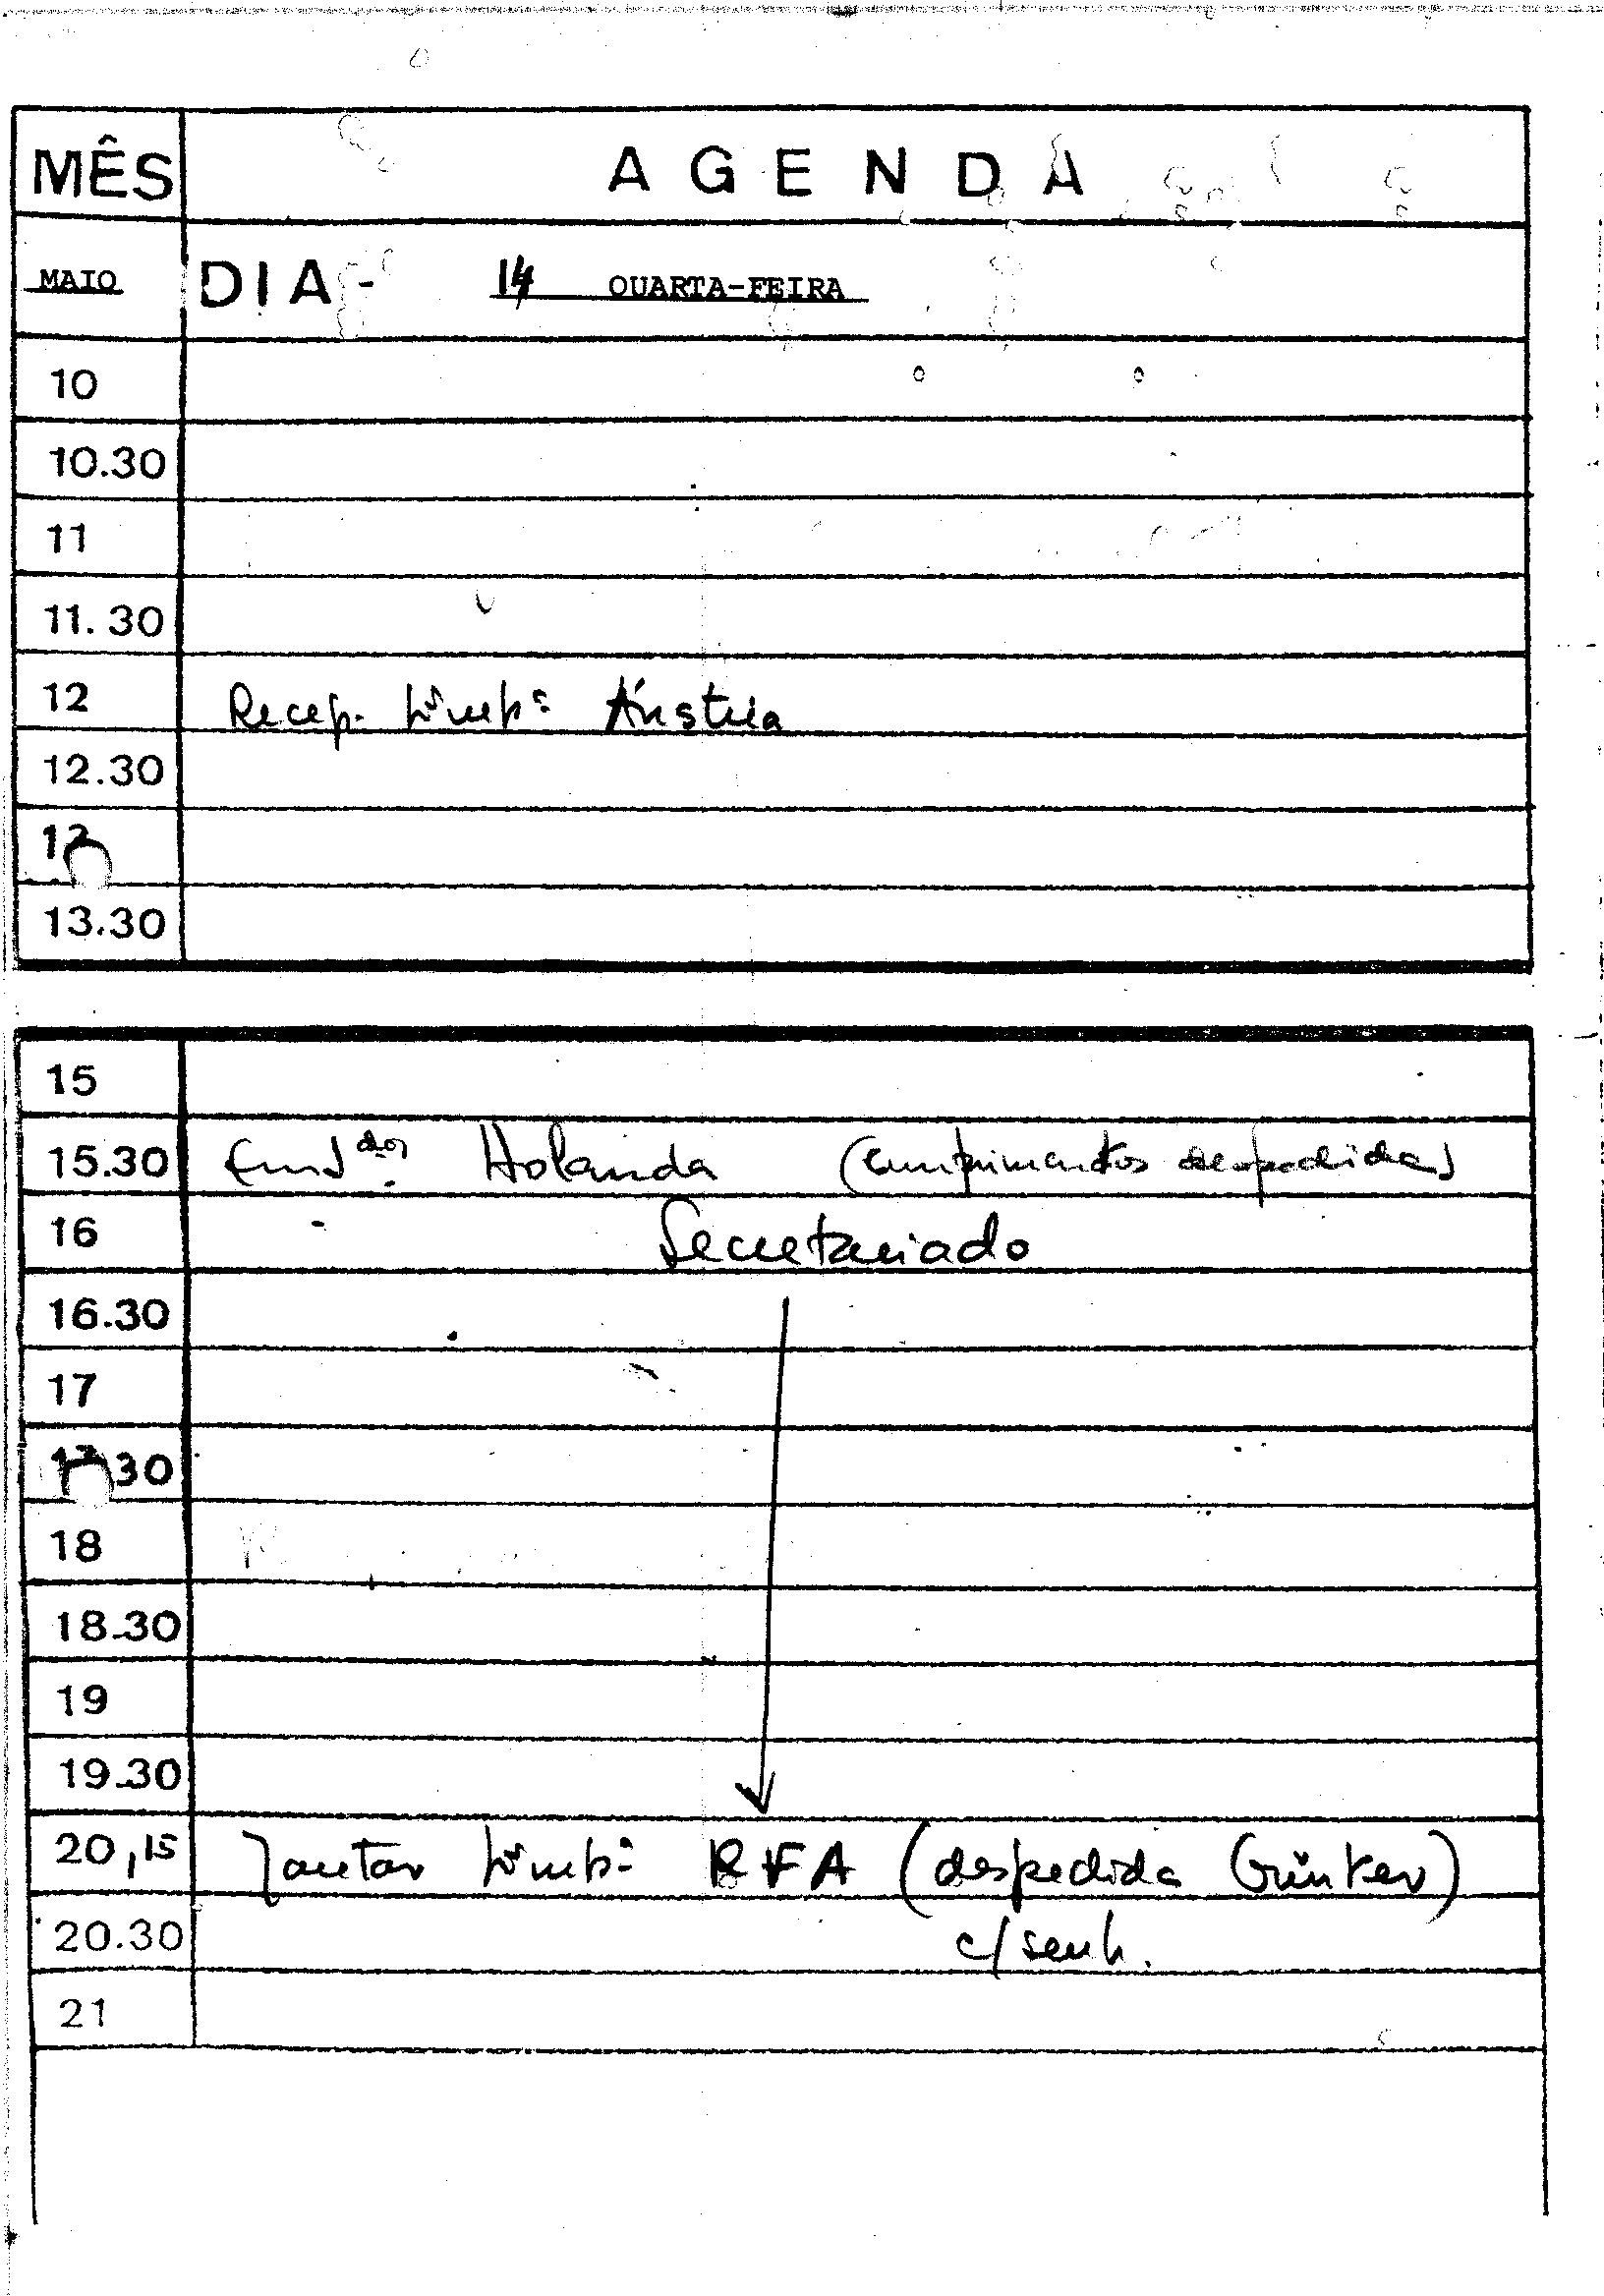 MÊS AGENDA
MAIO DIA - 14 QUARTA-FEIRA
10
10.30
11
11.30
12 Recep. Áustria
12.30
13.30
15
15.30 Holanda (cumprimentos despedida)
16 Secretariado
16.30
17
17.30
18
18.30
19
19.30
20,15 Jantar RFA (despedida Günker)
20.30 c/ senh.
21